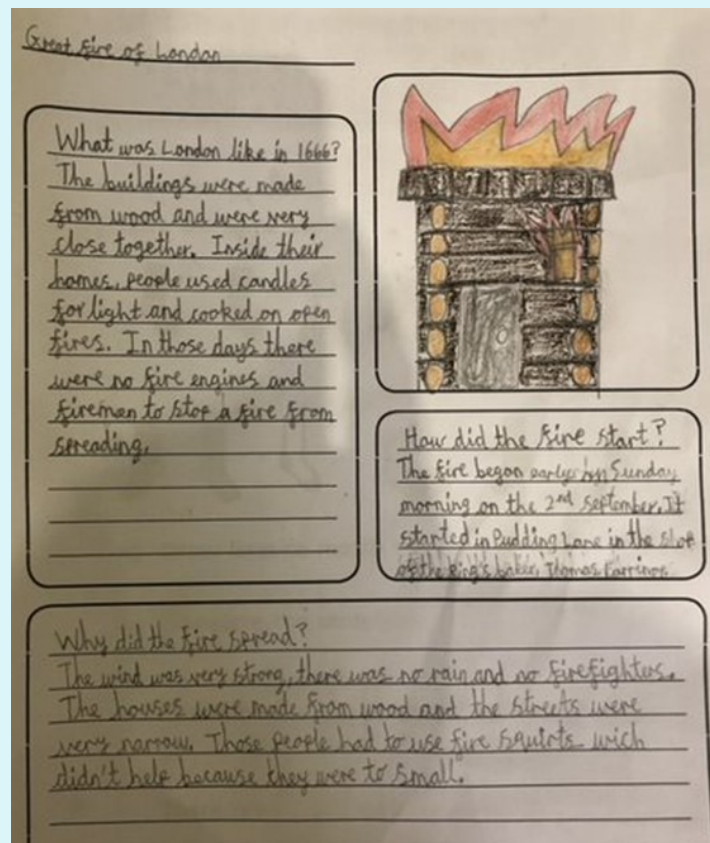 Great fire of London
What was London like in 1666?
The buildings were made
from wood and were very
close together. Inside their
homes, people used candles
for light and cooked on open
fires. In those days there
were no fire engines and
firemen to stop a fire from
spreading.
How did the fire start?
The fire began on Sunday
morning on the 2nd September. It
started in Pudding Lane in the shop
of the king's baker, Thomas Farrinor.
Why did the fire spread?
The wind was very strong, there was no rain and no firefighters.
The houses were made from wood and the streets were
very narrow. Those people had to use fire squirts wich
didn't help because they were to small.